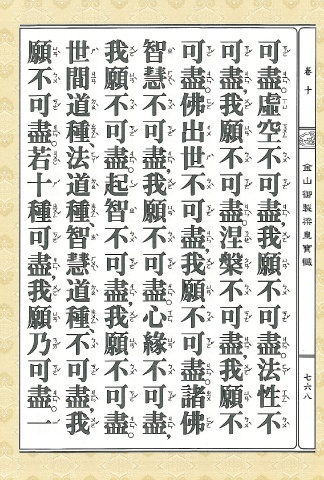 卷十
金山御製梁皇寶懺
七六八
可盡。虛空不可盡，我願不可盡。法性不
可盡，我願不可盡。涅槃不可盡，我願不
可盡。佛出世不可盡，我願不可盡。諸佛
智慧不可盡，我願不可盡。心緣不可盡，
我願不可盡。起智不可盡，我願不可盡。
世間道種、法道種、智慧道種、不可盡，我
願不可盡。若十種可盡，我願乃可盡。一